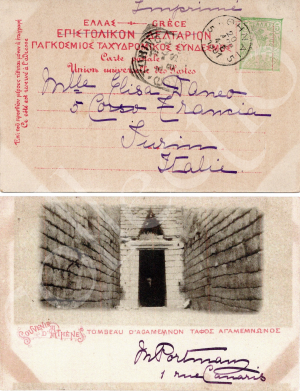 Imprimé
ΕΛΛΑΣ — GRÈCE
ΕΠΙΣΤΟΛΙΚΟΝ ΔΕΛΤΑΡΙΟΝ
ΠΑΓΚΟΣΜΙΟΣ ΤΑΧΥΔΡΟΜΙΚΟΣ ΣΥΝΔΕΣΜΟΣ
Carte postale
Union universelle des Postes
Ἐπὶ τοῦ προσθίου μέρους γράφεται μόνον ἡ ἐπιγραφή
Ce côté est réservé à l'adresse
Mlle Elisa Daneo
5 Corso Francia
Turin
Italie
ΑΘΗΝΑΙ 5
Souvenir
D'ATHÈNES
TOMBEAU D'AGAMEMNON ΤΑΦΟΣ ΑΓΑΜΕΜΝΩΝΟΣ
Portmann
1 rue Canaris